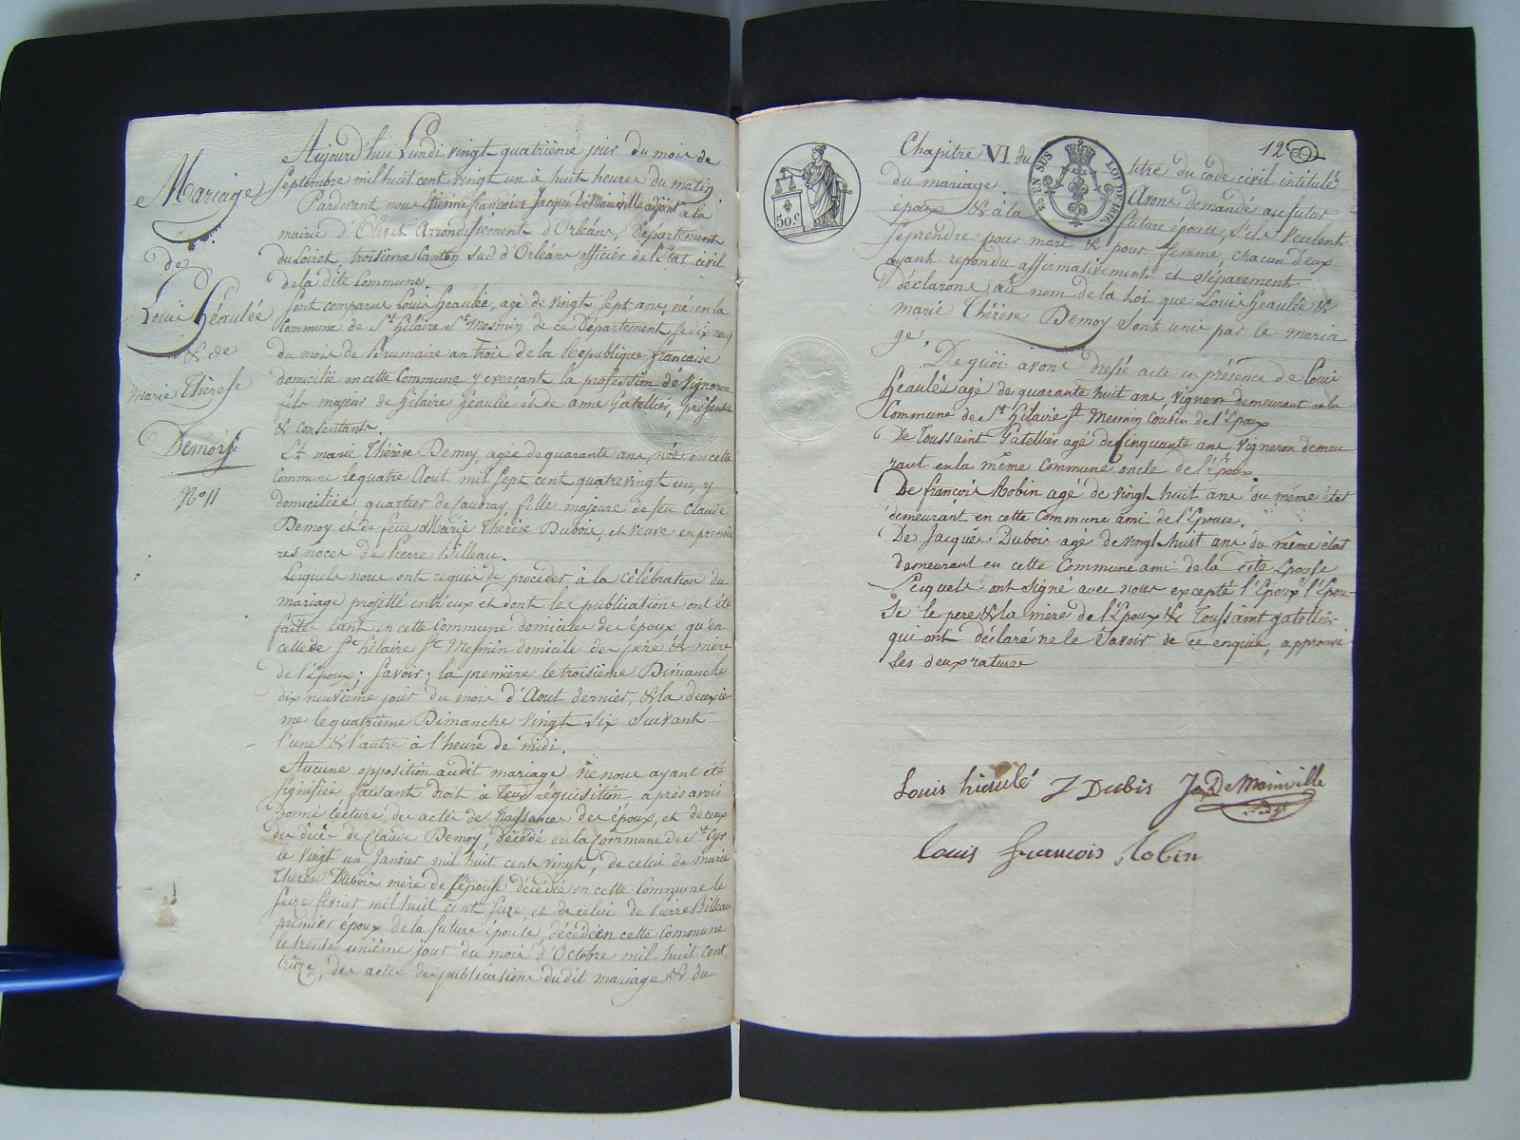 Mariage
de
Louis Héaulée
& de
Marie Thérese
Demoy
N.º 11
Aujourd'hui Lundi vingt quatrième jour du mois de
Septembre mil huit cent vingt un à huit heures du matin
Pardevant nous Etienne françois Jacques Démainville adjoint à la
mairie d'Olivet arrondissement d'Orléans, Département
du Loiret, troisieme Canton sud d'Orléans officier de l'état civil
de la dite Commune.
Sont comparus Louis heaulée, agé de vingt sept ans, né en la
Commune de St. hilaire St. Mesmin de ce Département le
du mois de Brumaire an Trois de la République française
domicilié en cette Commune y exerçant la profession de vigneron
fils majeur de hilaire heaulée et de anne Gatellier, présents
& consentants.
Et marie Thérèse Demoy, agée de quarante ans, née en cette
Commune le quatre Aout mil sept cent quatre vingt un, y
domiciliée quartier de , fille majeure de feu Claude
Demoy et de feue Marie Thérèse Dubois, et veuve en premie
res noces de Pierre Billeau.
Lesquels nous ont requis de procéder à la célébration du
mariage projetté entr'eux et dont les publications ont été
faites tant en cette Commune domicile des époux qu'en
celle de St. hilaire St. Mesmin domicile des père & mère
de l'époux; Savoir; la première le troisième Dimanche
dix neuvième jour du mois d'Aout dernier, & la deuxie
me le quatrième Dimanche vingt six suivant
l'une & l'autre à l'heure de midi.
Aucune opposition audit mariage ne nous ayant été
signifiée faisant droit à leur réquisition après avoir
donné lecture des actes de naissance des époux, et de ceux
de décès de Claude Demoy, décédé en la Commune de St. Cyr
le vingt un Janvier mil huit cent vingt, de celui de marie
Therese Dubois mère de l'épouse décédée en cette Commune le
seize février mil huit cent seize, et de celui de Pierre Billeau
premier époux de la future épouse, décédé en cette Commune
le trente unième jour du mois d'Octobre mil huit cent
treize, des actes de publications dudit mariage & du
12
50 C.
EN SUS
LOI DE 1816
Chapitre VI du titre du code civil intitulé
du mariage. Avons demandé au futur
epoux & à la future épouse, s'ils veulent
se prendre pour mari & pour femme, chacun d'eux
ayant répondu affirmativement et séparément
Déclarons au nom de la Loi que Louis heaulée &
marie Thérèse Demoy sont unis par le maria
ge.
De quoi avons dressé acte en présence de Louis
heaulée agé de quarante huit ans, vigneron demeurant en la
Commune de St. hilaire St. Mesmin Cousin de l'Epoux
De Toussaint Gatellier agé de cinquante ans, vigneron demeu
rant en la même Commune oncle de l'époux
De françois Robin agé de vingt huit ans du même état
demeurant en cette Commune ami de l'Epouse.
De Jacques Dubois agé de vingt huit ans du même état
demeurant en cette Commune ami de la dite Epouse
Lesquels ont signé avec nous excepté l'Epoux l'Epou
se le pere & la mère de l'Epoux & Toussaint gatellier
qui ont déclaré ne le savoir de ce enquis, approuvé
les deux ratures
Louis hieulé J Dubis J.a DeMainville
Louis francois Robin